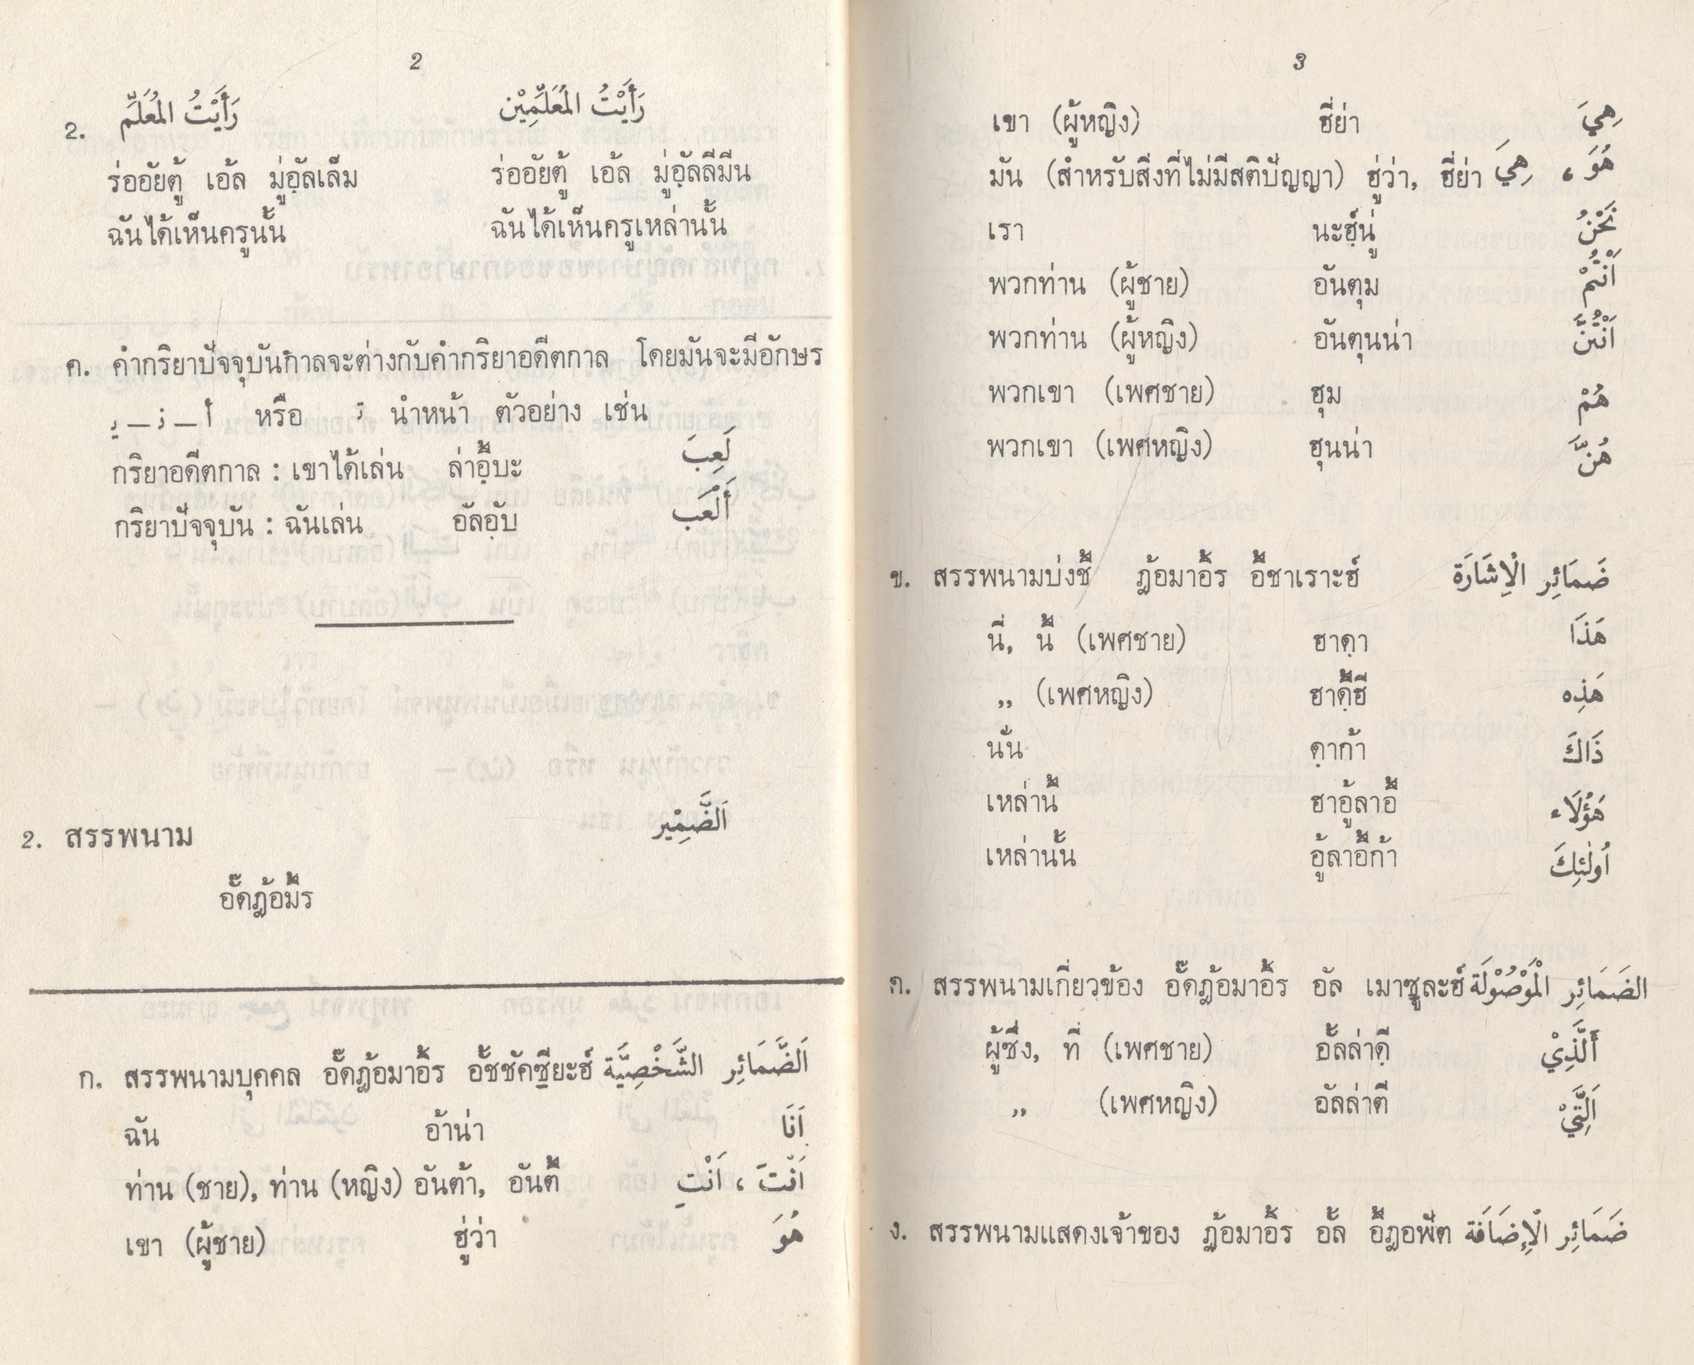 2
2. رَأَيْتُ المُعَلِّم رَأَيْتُ المُعَلِّمِيْن
ร่ออัยตู้ เอ้ล มู่อฺัลเล็ม ร่ออัยตู้ เอ้ล มู่อฺัลลีมีน
ฉันได้เห็นครูนั้น ฉันได้เห็นครูเหล่านั้น
ค. คำกริยาปัจจุบันกาลจะต่างกับคำกริยาอดีตกาล โดยมันจะมีอักษร
أ – نـ – يـ หรือ تـ นำหน้า ตัวอย่าง เช่น
กริยาอดีตกาล : เขาได้เล่น ล่าอฺิ๊บะ لَعِبَ
กริยาปัจจุบัน : ฉันเล่น อัลอฺับ أَلْعَب
2. สรรพนาม اَلضَّمِيْر
อั๊ดฎ้อมี๊ร
ก. สรรพนามบุคคล อั๊ดฎ้อมาอิ๊ร อั๊ชชัคซียะฮ์ اَلضَّمَائِر الشَّخْصِيَّة
ฉัน อ้าน่า اَنَا
ท่าน (ชาย), ท่าน (หญิง) อันต้า, อันตี๊ اَنْتَ ، اَنْتِ
เขา (ผู้ชาย) ฮู่ว่า هُوَ
3
เขา (ผู้หญิง) ฮี่ย่า هِيَ
มัน (สำหรับสิ่งที่ไม่มีสติปัญญา) ฮู่ว่า, ฮี่ย่า هُوَ ، هِيَ
เรา นะฮฺ์นู่ نَحْنُ
พวกท่าน (ผู้ชาย) อันตุม اَنْتُمْ
พวกท่าน (ผู้หญิง) อันตุนน่า اَنْتُنَّ
พวกเขา (เพศชาย) ฮุม هُمْ
พวกเขา (เพศหญิง) ฮุนน่า هُنَّ
ข. สรรพนามบ่งชี้ ฎ้อมาอิ๊ร อิ๊ชาเราะฮ์ ضَمَائِر الْاِشَارَة
นี่, นี้ (เพศชาย) ฮาดฺา هَذَا
,, (เพศหญิง) ฮาดฺี๊ฮี هَذِه
นั่น ดฺาก้า ذَاكَ
เหล่านี้ ฮาอู้ลาอิ๊ هَؤُلَاء
เหล่านั้น อู้ลาอิ๊ก้า اُولٰئِكَ
ค. สรรพนามเกี่ยวข้อง อั๊ดฎ้อมาอิ๊ร อัล เมาซูละฮ์ الضَمَائِر الْمَوْصُوْلَة
ผู้ซึ่ง, ที่ (เพศชาย) อั้ลล่าดฺี أَلَّذِيْ
,, (เพศหญิง) อัลล่าตี اَلَّتِيْ
ง. สรรพนามแสดงเจ้าของ ฎ้อมาอิ๊ร อั้ล อิ๊ฎอฟัต ضَمَائِر الْاِضَافَة